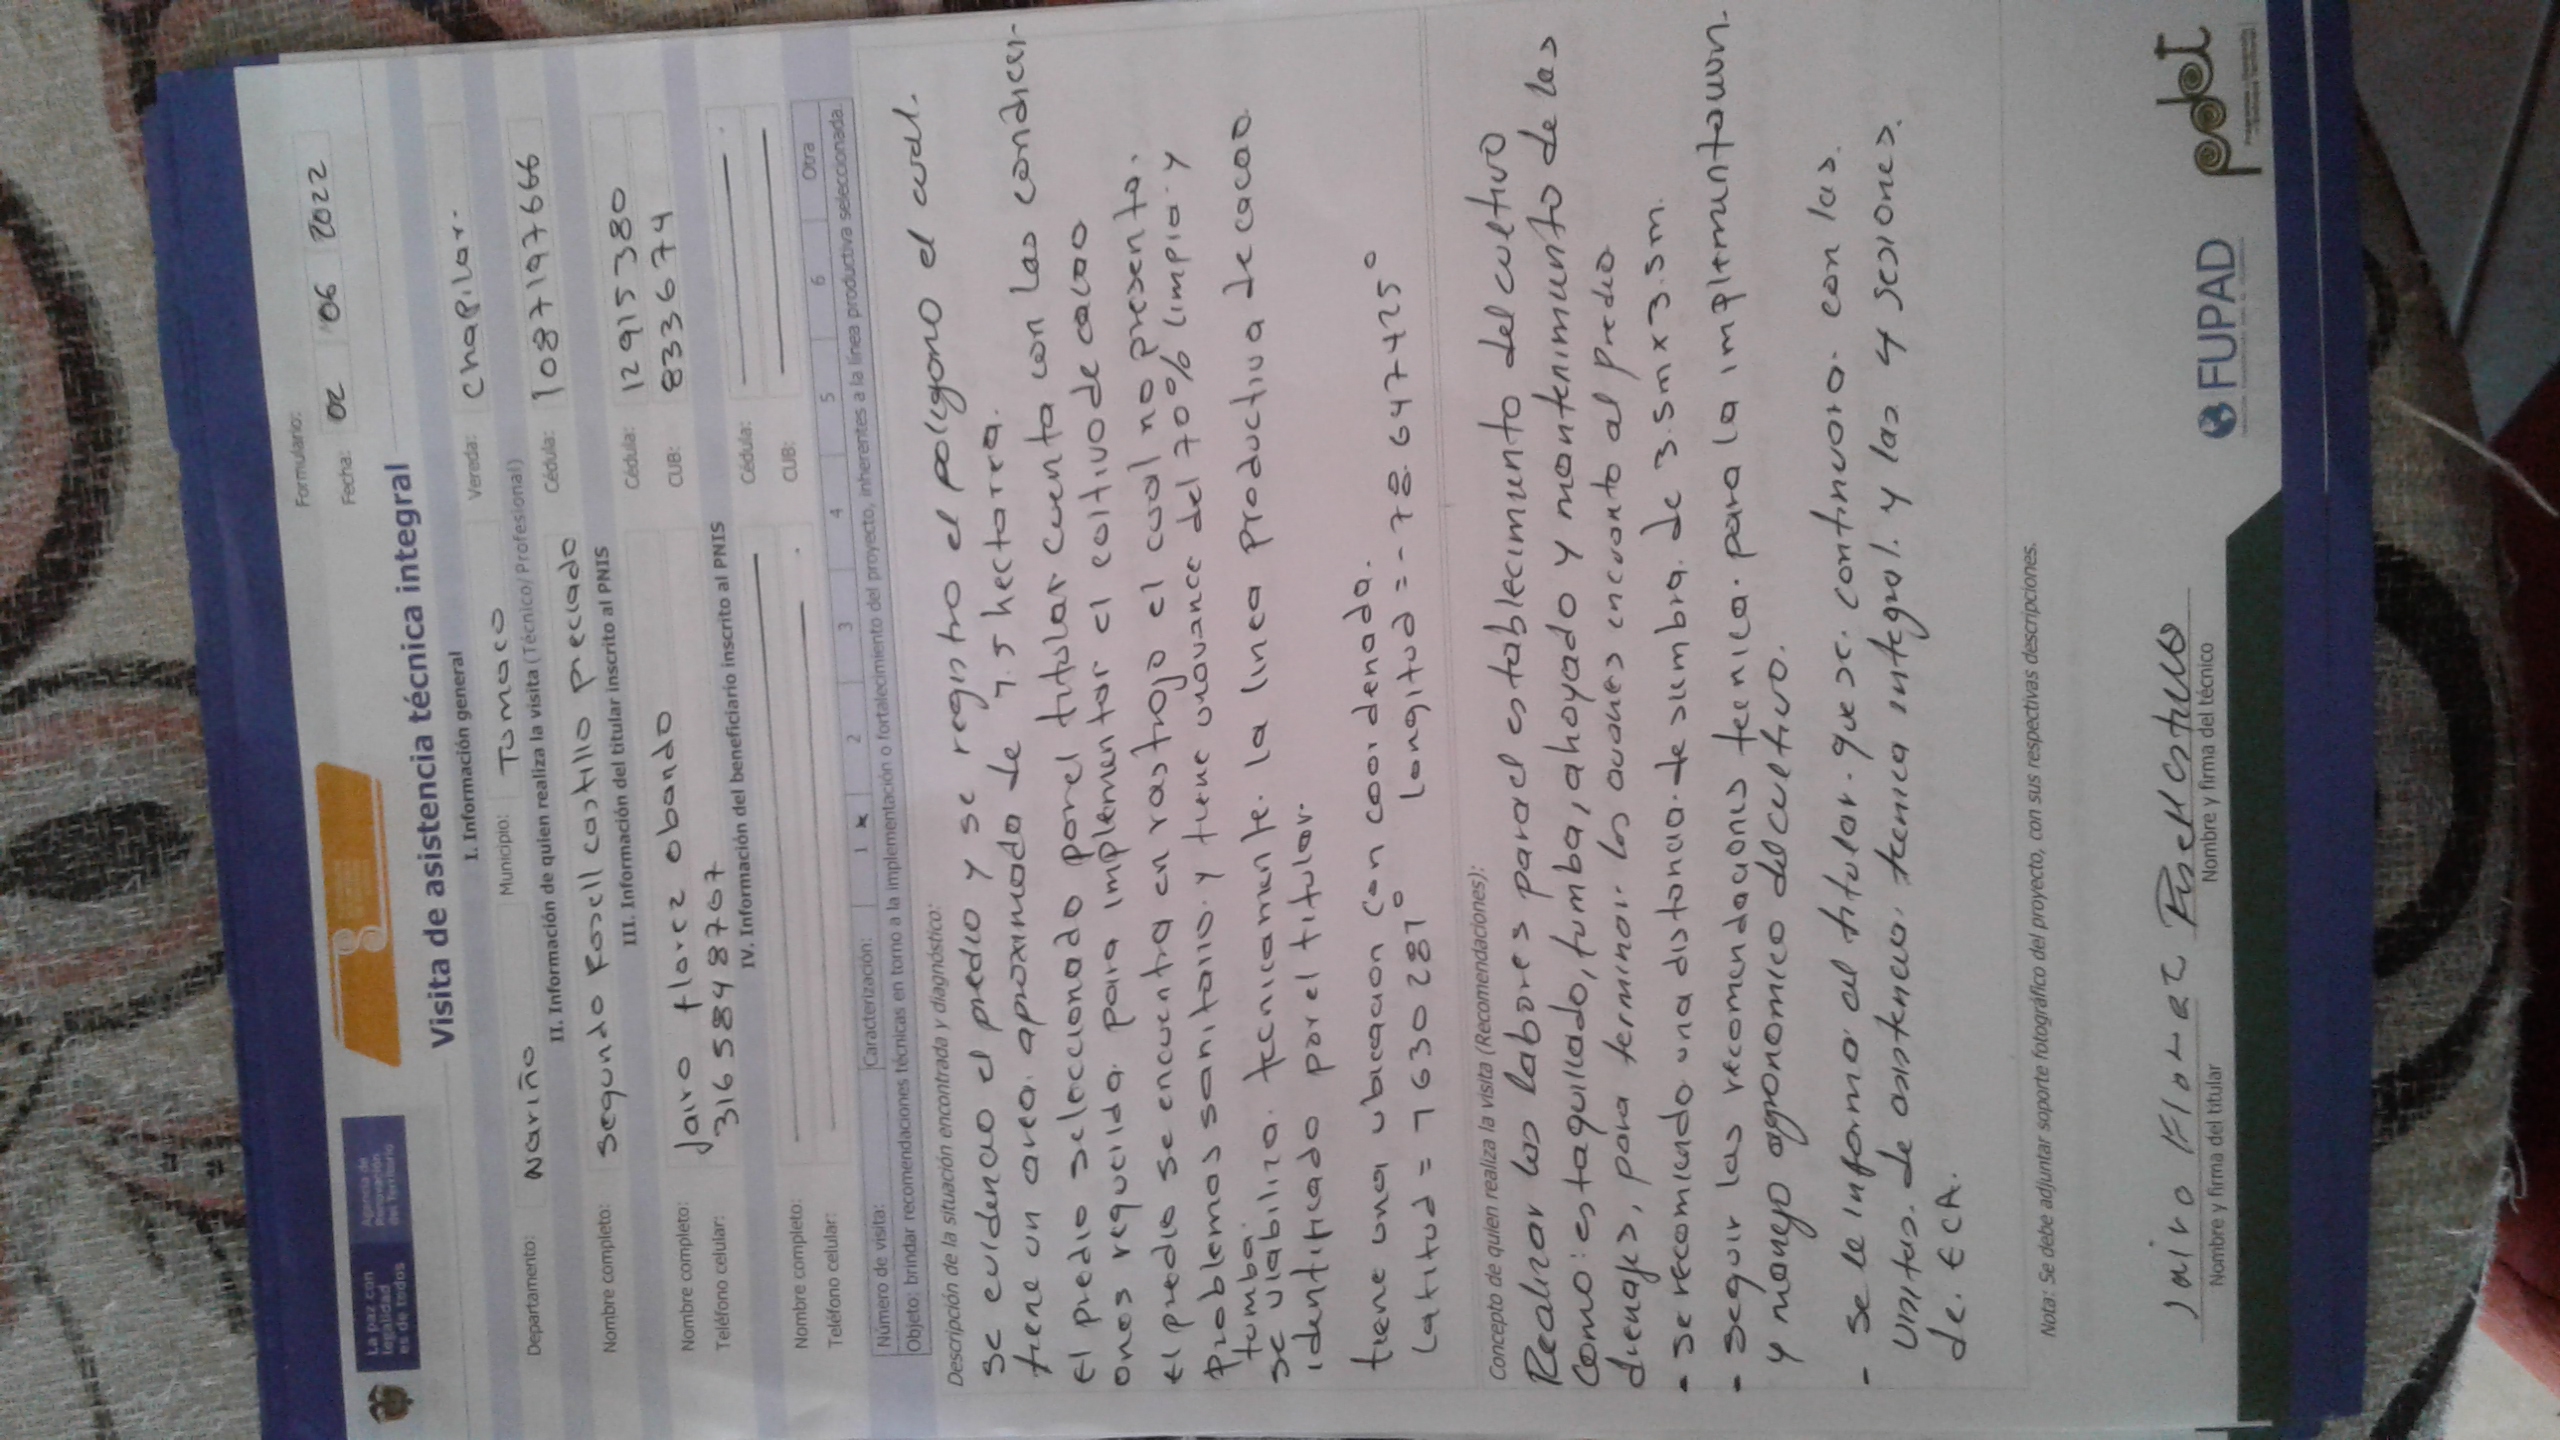 La paz con
legalidad
es de todos
Agencia de
Renovación
del Territorio
Formulario:
Fecha: 02 06 2022
Visita de asistencia técnica integral
I. Información general
Departamento: Nariño Municipio: Tumaco Vereda: chapilar.
II. Información de quien realiza la visita (Técnico/ Profesional)
Nombre completo: segundo Rosell castillo preciado Cédula: 1087197666
III. Información del titular inscrito al PNIS
Nombre completo: Jairo florez obando Cédula: 12915380
Teléfono celular: 3165848767 CUB: 8336674
IV. Información del beneficiario inscrito al PNIS
Nombre completo: Cédula:
Teléfono celular: CUB:
Número de visita: Caracterización: 1 x 2 3 4 5 6 Otra
Objeto: brindar recomendaciones técnicas en torno a la implementación o fortalecimiento del proyecto, inherentes a la línea productiva seleccionada.
Descripción de la situación encontrada y diagnóstico:
se evidencio el predio y se registro el poligono el cual.
tiene un area. aproximado de 1.5 hectarea.
el predio seleccionado por el titular cuenta con las condici-
ones requerida. para implementar el cultivo de cacao
el predio se encuentra en rastrojo el cual no presenta.
problemas sanitario. y tiene un avance del 70% limpia. y
tumba.
se viabiliza. tecnicamente. la linea productiva de cacao
identificado por el titular.
tiene una ubicacion con coordenada.
Latitud = 1630281° Longitud = -78.647425°
Concepto de quien realiza la visita (Recomendaciones):
Realizar las labores para el establecimiento del cultivo
como: estaquillado, tumba, ahoyado y mantenimiento de las
drenajes, para terminar los avances en cuanto al predio.
- se recomienda una distancia de siembra. de 3.5m x 3.5m.
- seguir las recomendaciones tecnica. para la implementacion.
y manejo agronomico del cultivo.
- se le informo al titular. que se. continuara. con las.
visitas. de asistencia. tecnica integral. y las 4 sesiones.
de. ECA.
Nota: Se debe adjuntar soporte fotográfico del proyecto, con sus respectivas descripciones.
Jairo Florez
Nombre y firma del titular
Rosell castillo
Nombre y firma del técnico
FUPAD
pdet